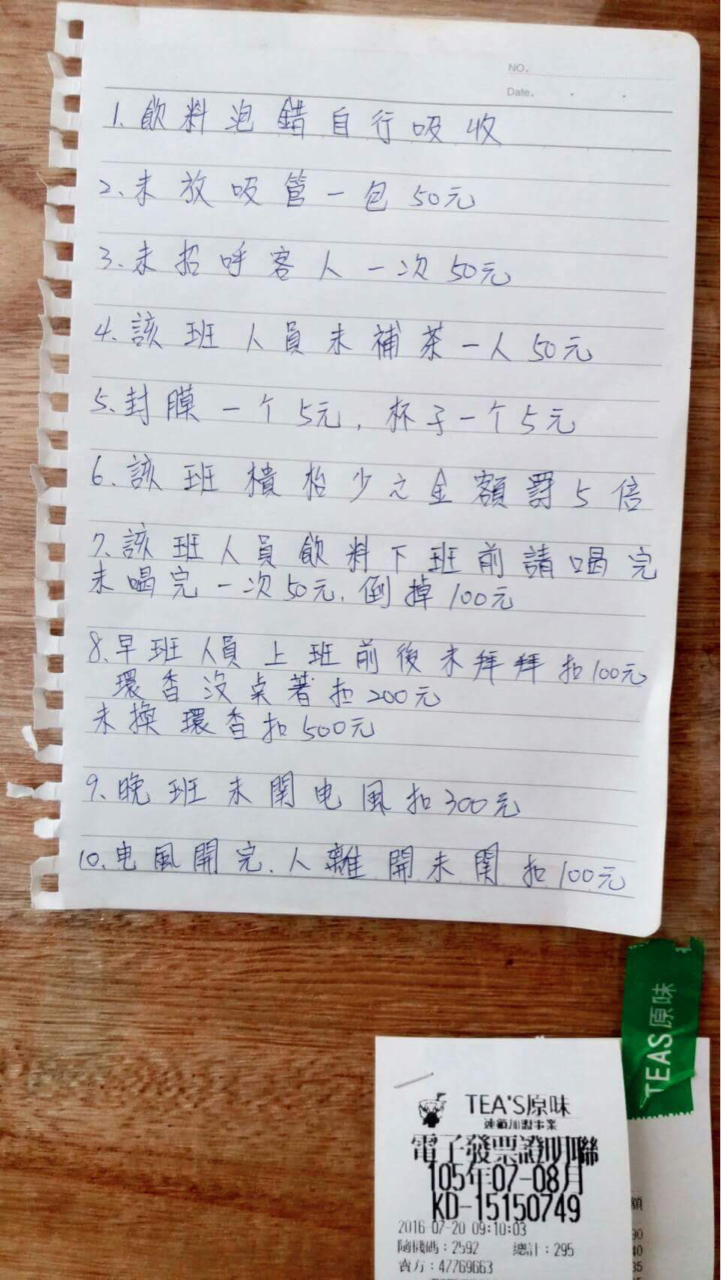 NO.
Date.
1. 飲料泡錯自行吸收
2. 未放吸管一包50元
3. 未招呼客人一次50元
4. 該班人員未補茶一人50元
5. 封膜一个5元, 杯子一个5元
6. 該班櫃枱少之金額罸5倍
7. 該班人員飲料下班前請喝完
未喝完一次50元. 倒掉100元
8. 早班人員上班前後未拜拜扣100元
環香沒點著扣200元
未換環香扣500元
9. 晚班未関电風扣300元
10. 电風開完. 人離開未関扣100元
TEAS原味
TEA'S原味
連鎖加盟事業
電子發票證明聯
105年07-08月
KD-15150749
2016-07-20 09:10:03
隨機碼:2592 總計:295
賣方:47769663
額
90
40
35